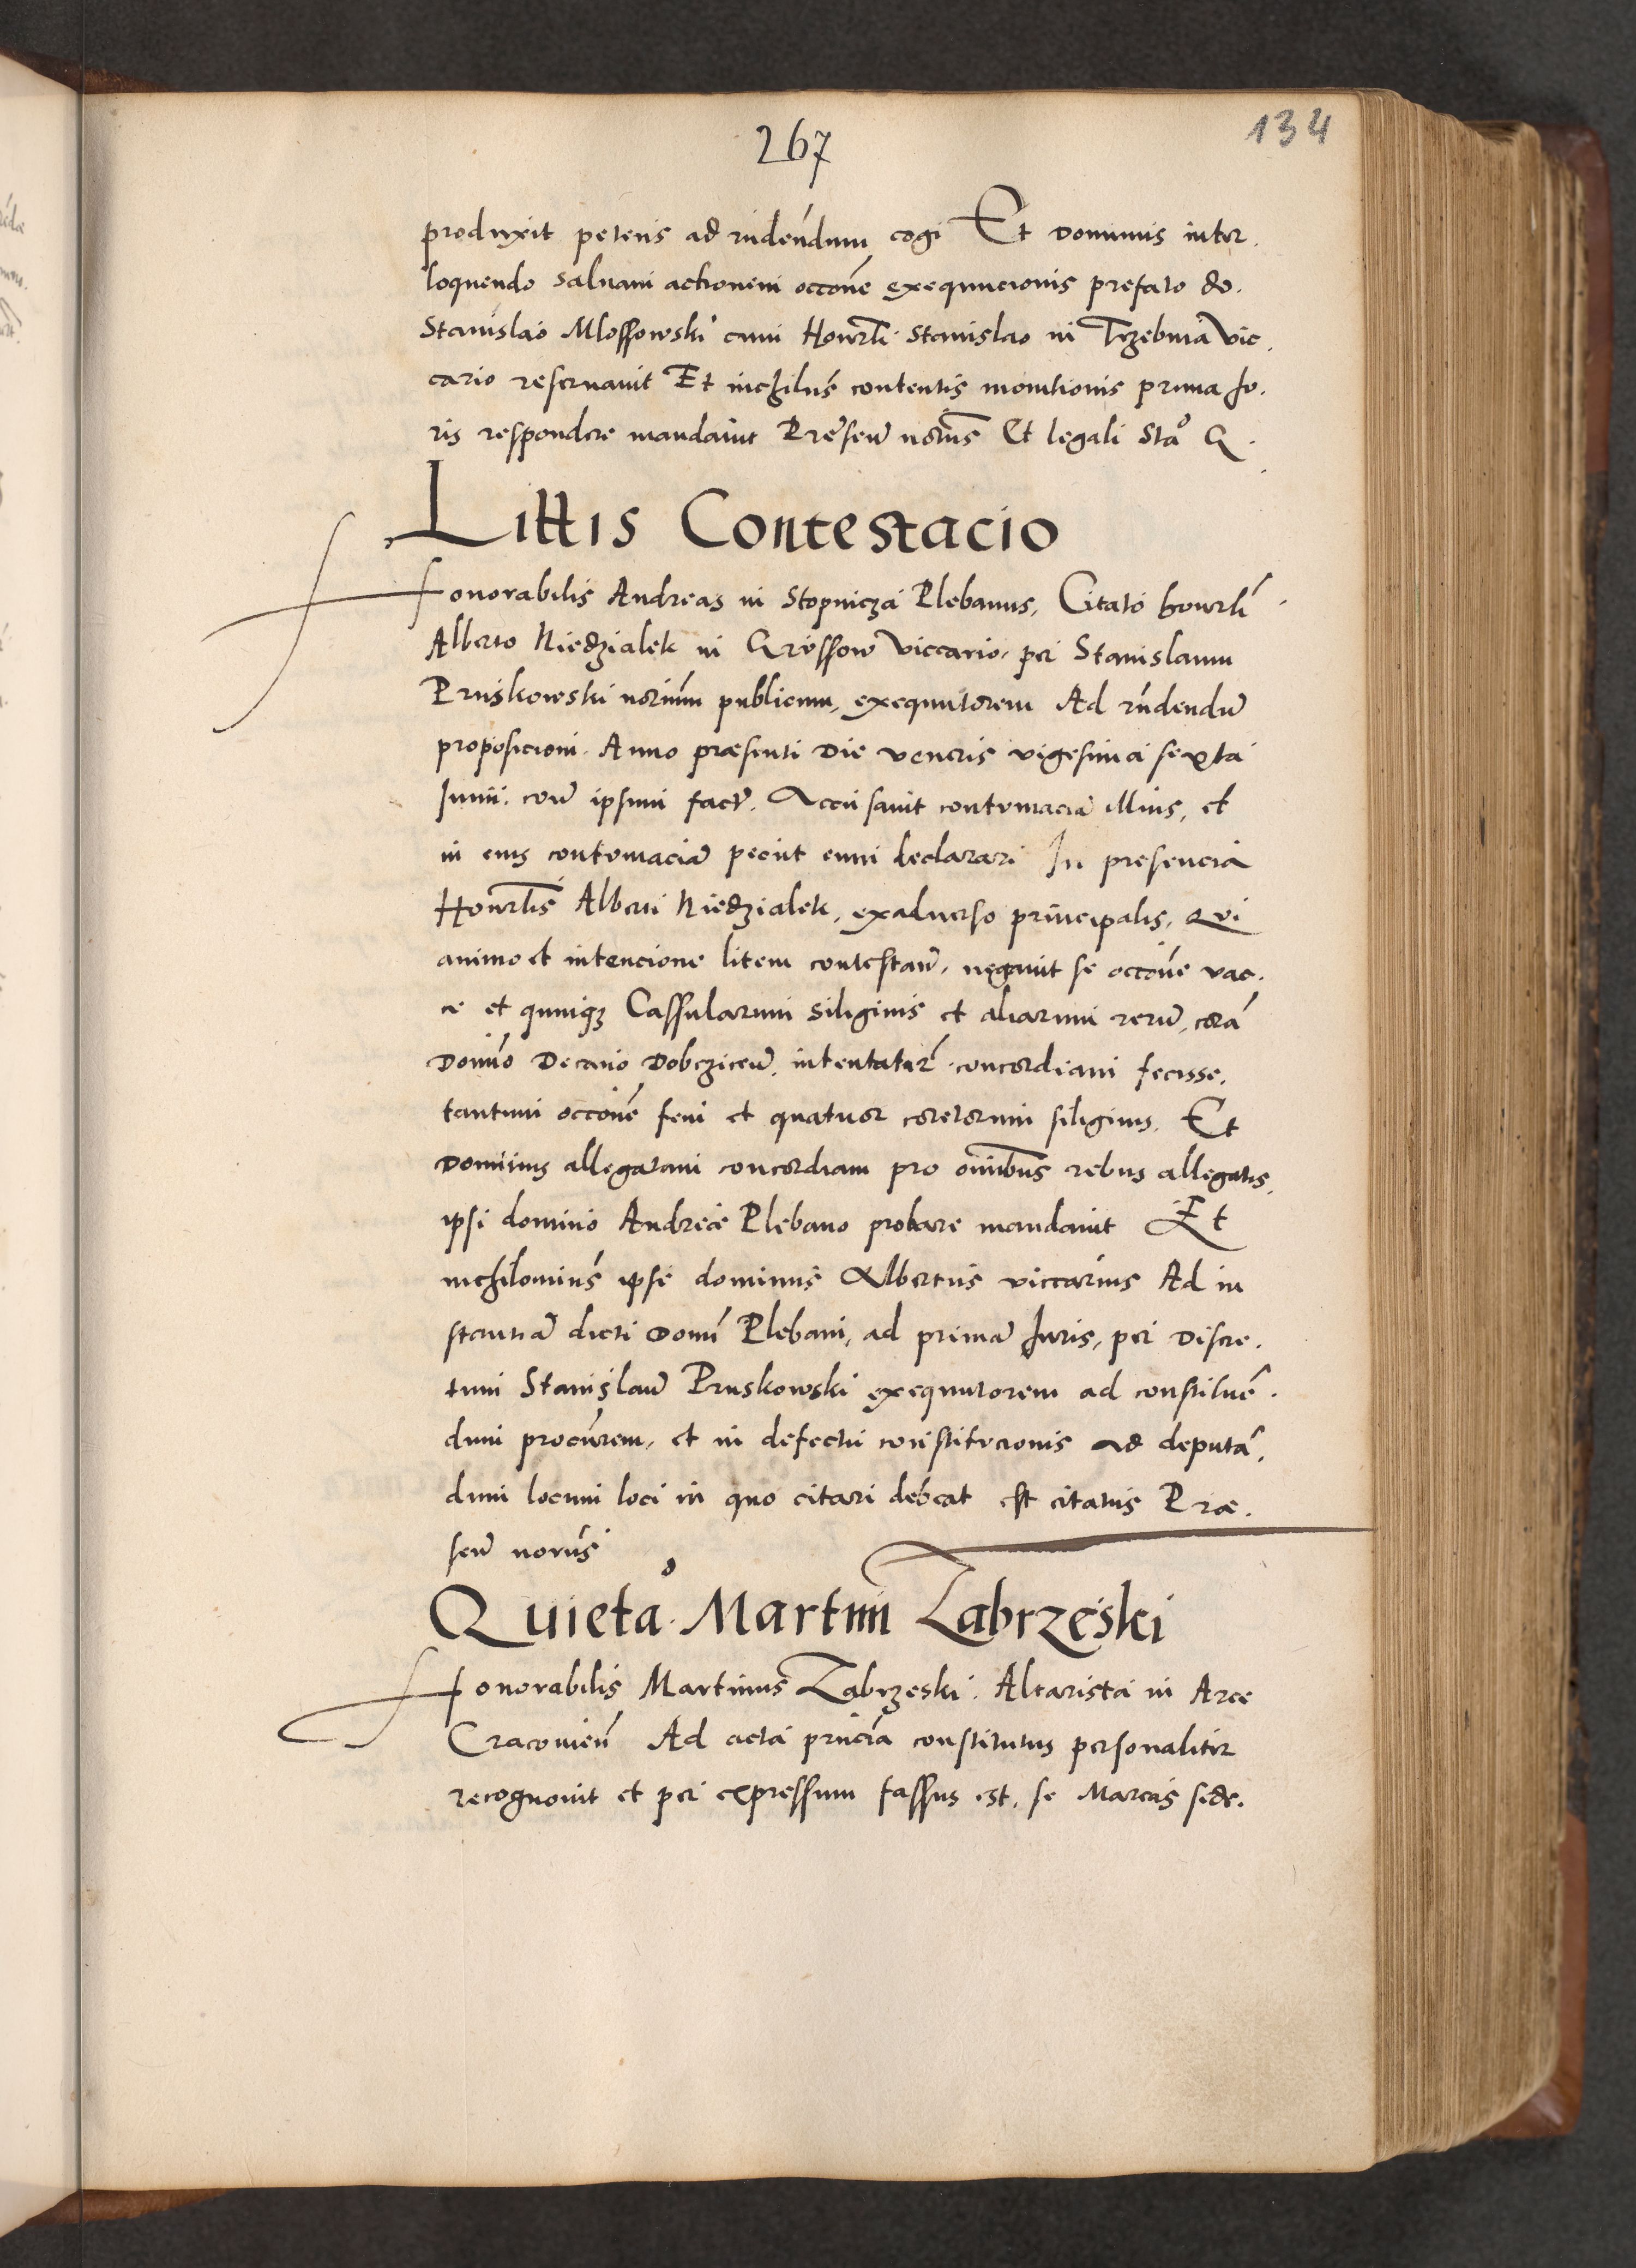 267
134
produxit petens ad rñdendum cogi Et Dominus inter.
loquendo salvam actionem occõne exequucionis prefato do.
Stanislao Mlossowski cum Honrli Stanislao in Trzebnia Vic.
cario reservavit Et nichilus contentis monitionis prima Ju.
ris respondere mandavit Presen notus Et legali Stao
Littis Contestacio
Honorabilis Andreas in Stopnicza Plebanus, Citato honrli
Alberto Niedzialek in Grossow Viccario, per Stanislaum
Pruskowski notium publicum, exequutorem Ad rñdendũ
proposicioni. Anno praesenti Die veneris vigesima sexta
Junii. corã ipsum factę. Accusavit contumaciã illius, et
in eius contumaciã peciit eum declarari In presencia
Honrlis Alberti Niedzialek, exadverso principalis, Qvi
animo et intencione litem contestań, negavit se occõne vac.
ce et quinqz Cassularum siliginis et aliarum rerũ, corã
Domĩo Decano Dobczicen. intentatar concordiam fecisse,
tantum occõne feni et quatuor coretorum siliginis. Et
Dominus allegatam concordiam pro omnibus rebus allegatis,
ipsi domino Andreae Plebano probare mandavit Et
nichilominus ipse dominus Albertus viccarius Ad in
stantiã dicti Domi Plebani, ad primã Juris, per Discre.
tum Stanislaũ Pruskowski exequutorem ad constituẽ.
dum procurem, et in defectu constitucionis ad deputã.
dum locum loci in quo citari debeat est citatus Prae.
sen notus
Quietao Martini Zabrzeski
Honorabilis Martinus Zabrzeski. Altarista in Arce
Cracovien Ad acta princia constitutus personaliter
recognovit et per expressum fassus est, se Marcas sede.